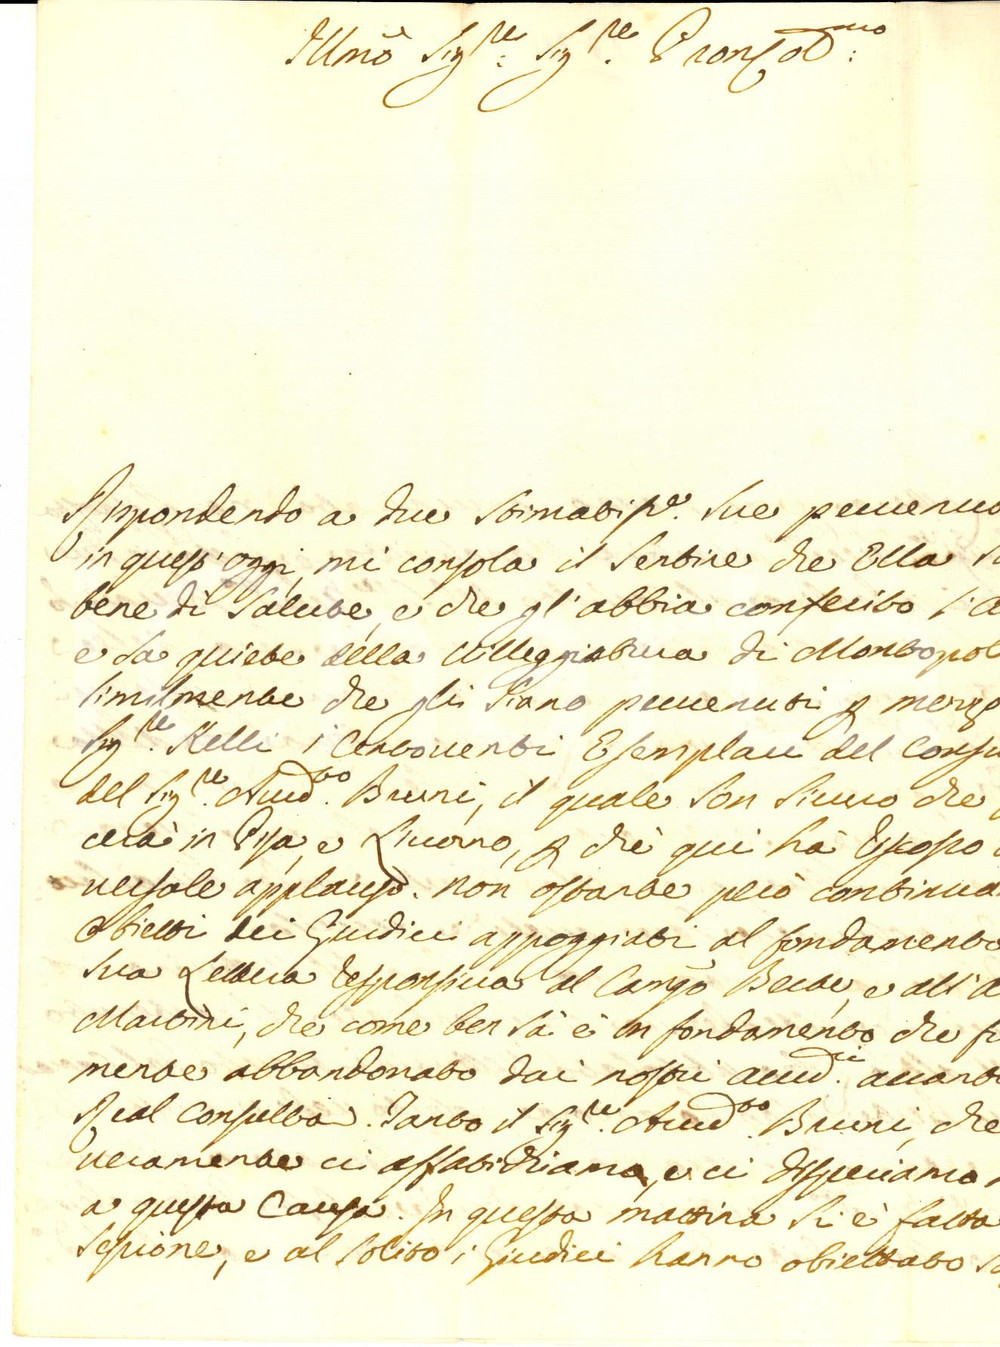 Illmo Sig.re Sig.re Pron Col.mo
Rispondendo a due stimatis.e sue pervenu
in quest'oggi, mi consola il sentire che Ella s
bene di salute, e che gl'abbia conferito l'a
e la quiete della Villeggiatura di Montopol
similmente che gli siano pervenuti p mezzo
Sig.re Kelli i Controuerti Esemplari del Consu
del Sig.re Aud.to Bruni, il quale son sicuro che
cerà in Pisa, e Livorno, p chè qui hà riscosso
uersale applauso. Non ostante però continua
obietti dei Giudici appoggiati al fondamento
sua Lettera responsiva al Canco Berte, e all'A
Martini, che come ben sà è un fondamento che fu
mente abbandonato dai nostri auud.ci auanti
Real Consulta. Tanto il Sig.re Aud.to Bruni, che
ueramente ci affatichiamo, e ci disperiamo
a questa Causa. In questa mattina si è fatta
sessione, e al solito i Giudici hanno obiettato